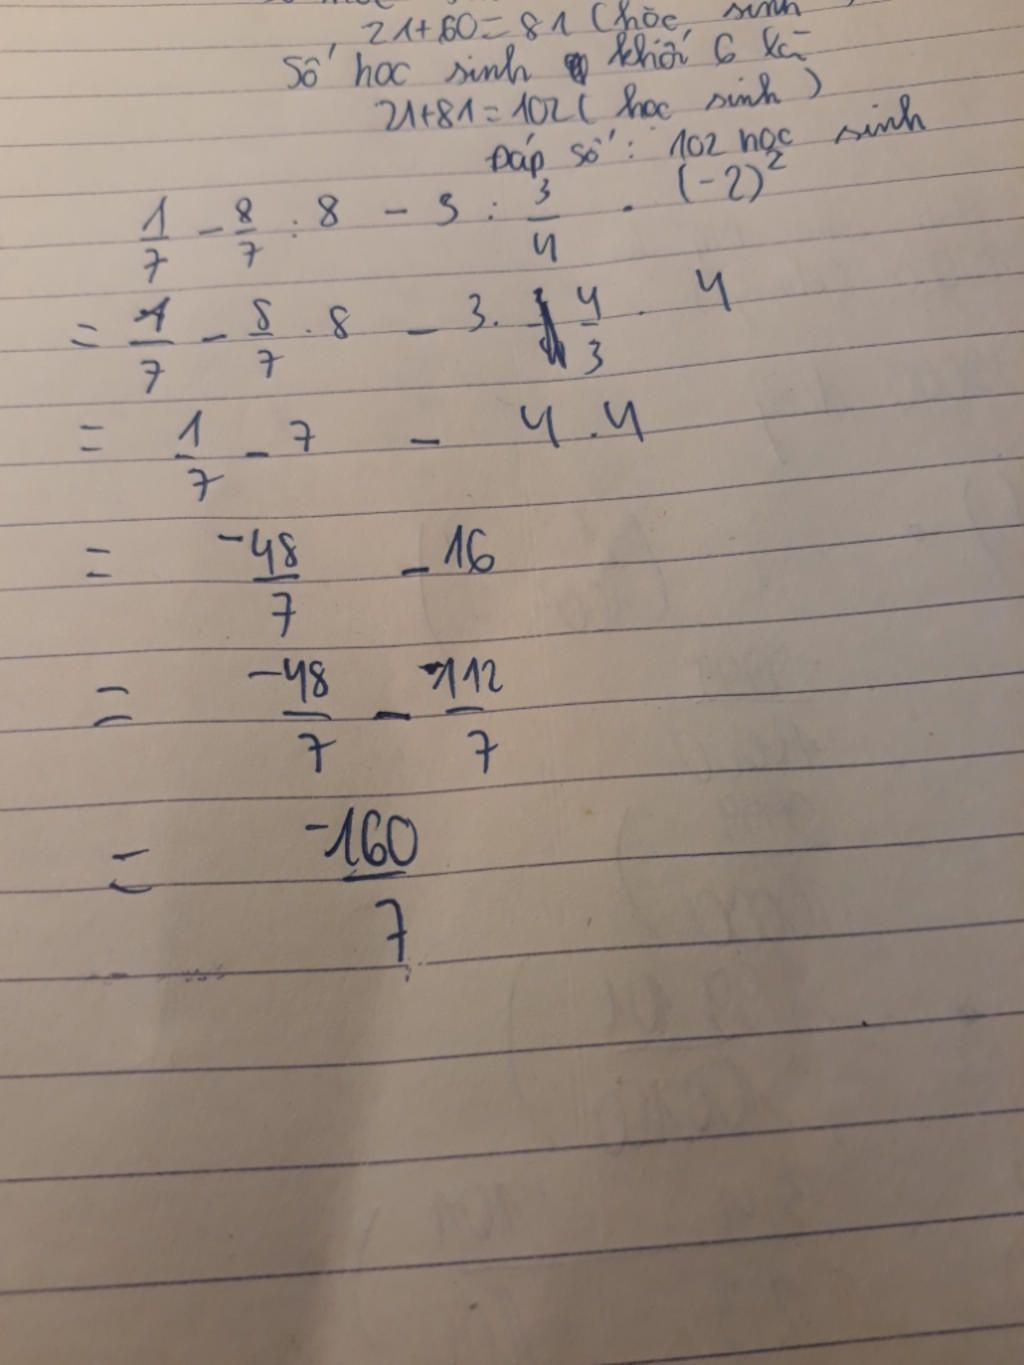 21+60=81 (học sinh
Số học sinh khối 6 là
21+81=102 ( học sinh )
Đáp số : 102 học sinh
1/7 - 8/7 : 8 - 3 : 3/4 . (-2)²
= 1/7 - 8/7 . 8 - 3. 4/3 . 4
= 1/7 - 7 - 4.4
= -48/7 - 16
= -48/7 - 112/7
= -160/7